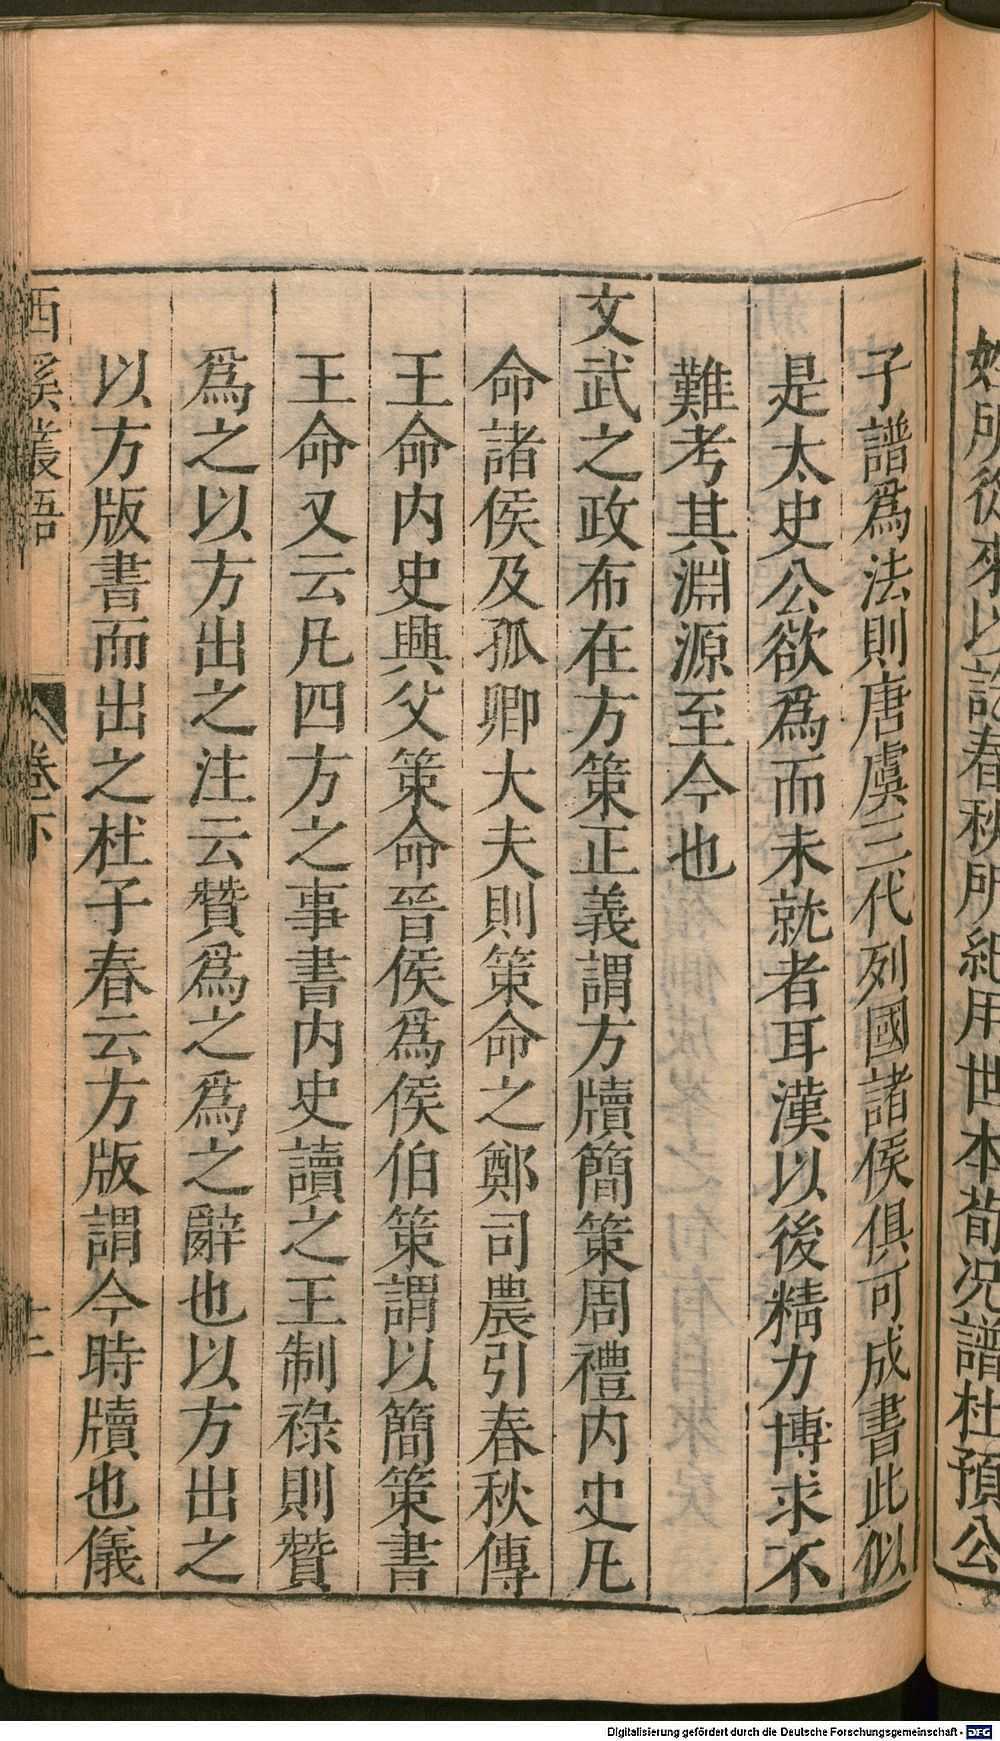 姓所從來以詰春秋所紀用世本荀况譜杜預公
子譜爲法則唐虞三代列國諸侯俱可成書此似
是太史公欲爲而未就者耳漢以後精力博求不
難考其淵源至今也
文武之政布在方策正義謂方牘簡策周禮内史凡
命諸侯及孤卿大夫則策命之鄭司農引春秋傳
王命内史興父策命晉侯爲侯伯策謂以簡策書
王命又云凡四方之事書内史讀之王制祿則贊
爲之以方出之注云贊爲之爲之辭也以方出之
以方版書而出之杜子春云方版謂今時牘也儀
西溪叢語 卷下
Digitalisierung gefördert durch die Deutsche Forschungsgemeinschaft - DFG